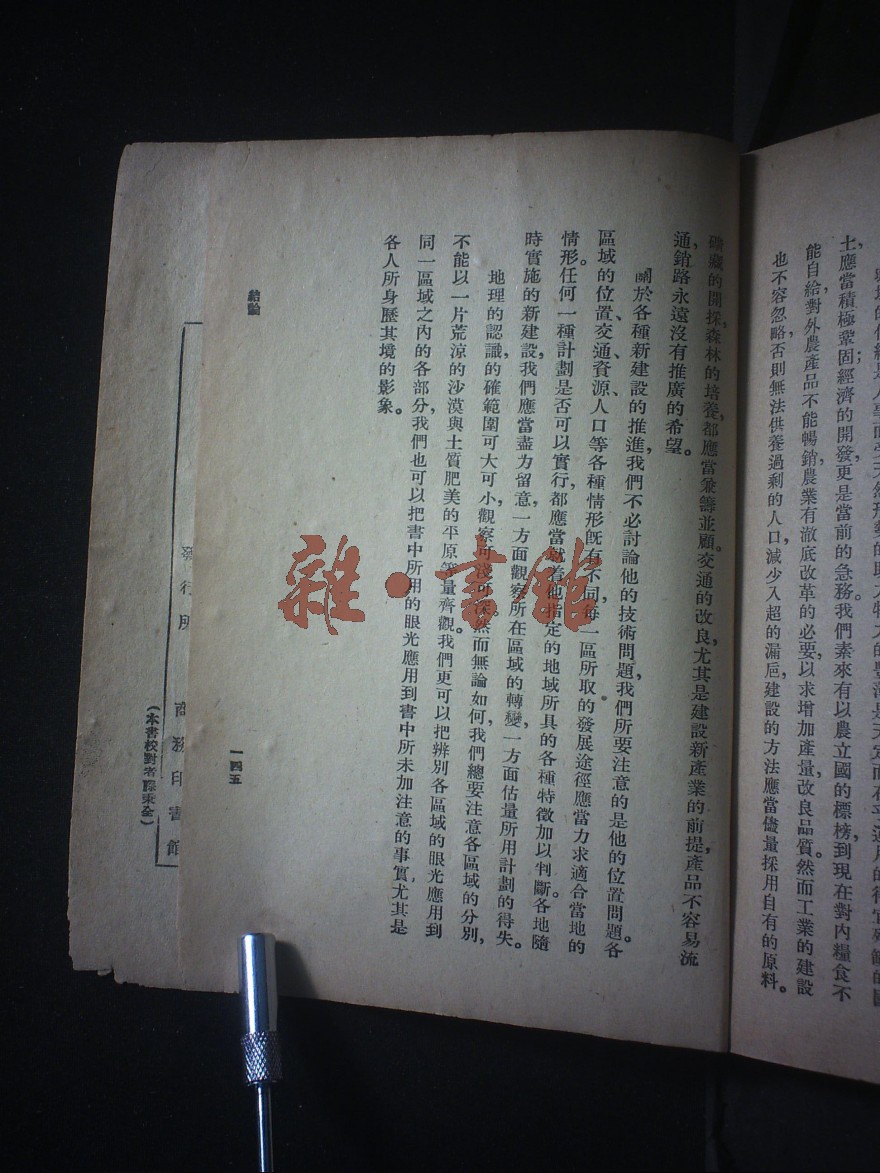 土應當積極鞏固;經濟的開發,更是當前的急務。我們素來有以農立國的標榜,到現在對內糧食不
能自給,對外農產品不能暢銷,農業有澈底改革的必要,以求增加產量,改良品質。然而工業的建設
也不容忽略,否則無法供養過剩的人口,減少入超的漏巵。建設的方法應當儘量採用自有的原料。
礦藏的開採,森林的培養,都應當兼籌並顧。交通的改良尤其是建設新產業的前提,產品不容易流
通,銷路永遠沒有推廣的希望。
關於各種新建設的推進,我們不必討論他的技術問題,我們所要注意的是他的位置問題。各
區域的位置、交通、資源、人口等各種情形旣有不同,每一區所取的發展途徑應當力求適合當地的
情形。任何一種計劃是否可以實行,都應當就着他指定的地域所具的各種特徵加以判斷。各地隨
時實施的新建設,我們應當盡力留意,一方面觀察所在區域的轉變,一方面估量所用計劃的得失。
地理的認識,的確範圍可大可小,觀察可淺可深,然而無論如何,我們總要注意各區域的分別,
不能以一片荒涼的沙漠與土質肥美的平原等量齊觀。我們更可以把辨別各區域的眼光應用到
同一區域之內的各部分,我們也可以把書中所用的眼光應用到書中所未加注意的事實,尤其是
各人所身歷其境的影象。
結論
一四五
發行所
商務印書館
(本書校對者 秉全)
雜·書館